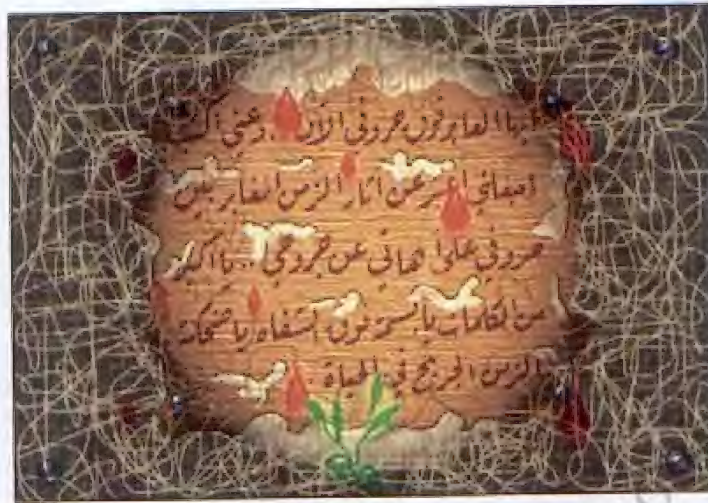 أيها العابر فوق حروفي الآن .. دعني أكتب
أعبر عن آثار الزمن الغابر بين
حروفي على عن جروحي .. يا أكبر
من الكلمات يا بسمة فوق الشفاه يا ضحكة
الزمن الجريح في الحياة